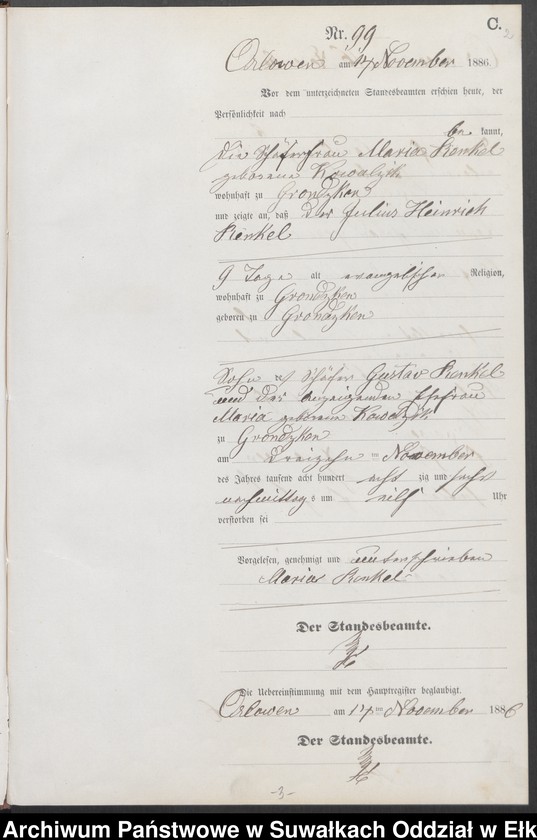 C.
Nr. 99
Orlowen am 17 November 1886
Vor dem unterzeichneten Standesbeamten erschien heute, der
Persönlichkeit nach
be kannt,
die Schäferfrau Maria Renkel
geborene Kowalzik
wohnhaft zu Grondzken
und zeigte an, daß der Julius Heinrich
Renkel
9 Tage alt evangelischer Religion,
wohnhaft zu Grondzken
geboren zu Grondzken
Sohn des Schäfer Gustav Renkel
und der Ehefrau
Maria geborene Kowalzik
zu Grondzken
am dreizehn ten November
des Jahres tausend acht hundert acht zig und sechs
nachmittag s um eilf Uhr
verstorben sei
Vorgelesen, genehmigt und unterschrieben
Maria Renkel
Der Standesbeamte.
Die Uebereinstimmung mit dem Hauptregister beglaubigt.
Orlowen am 17ten November 1886
Der Standesbeamte.
-3-
Archiwum Państwowe w Suwałkach Oddział w Ełk